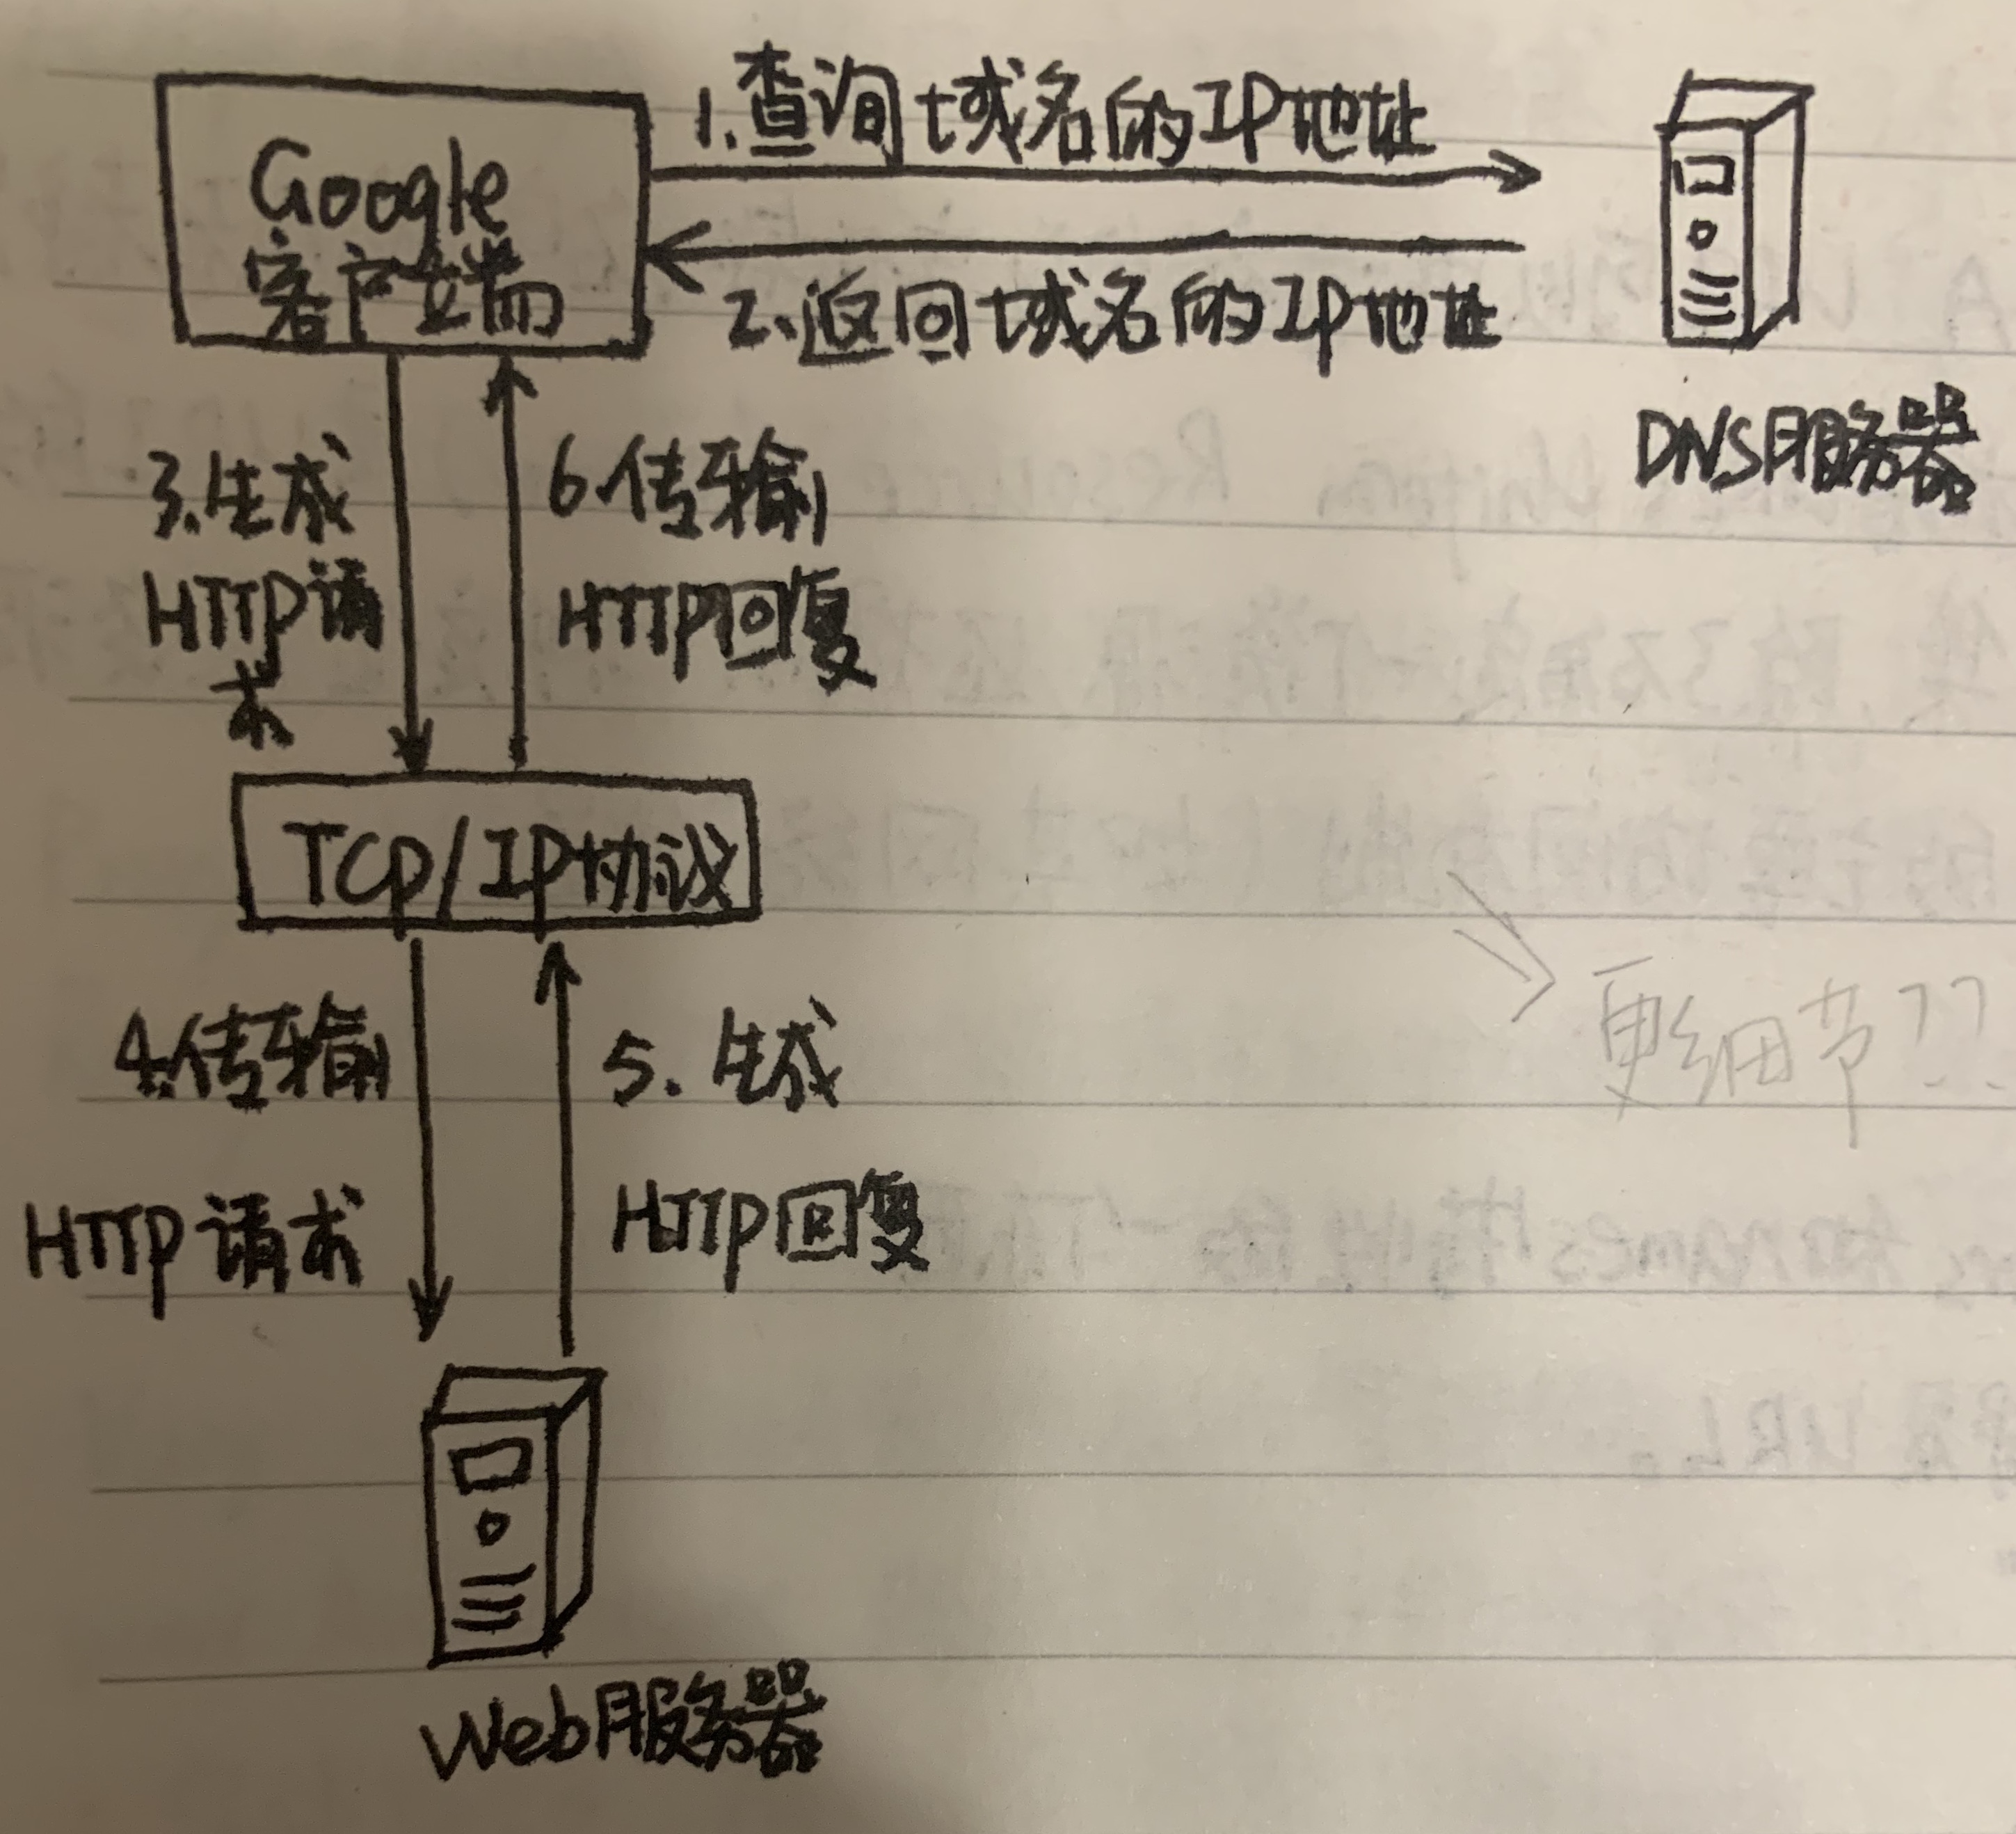 Google
客户端
1.查询域名的IP地址
2.返回域名的IP地址
DNS服务器
3.生成
HTTP请
求
6.传输
HTTP回复
TCP/IP协议
4.传输
HTTP请求
5.生成
HTTP回复
更细节??
Web服务器